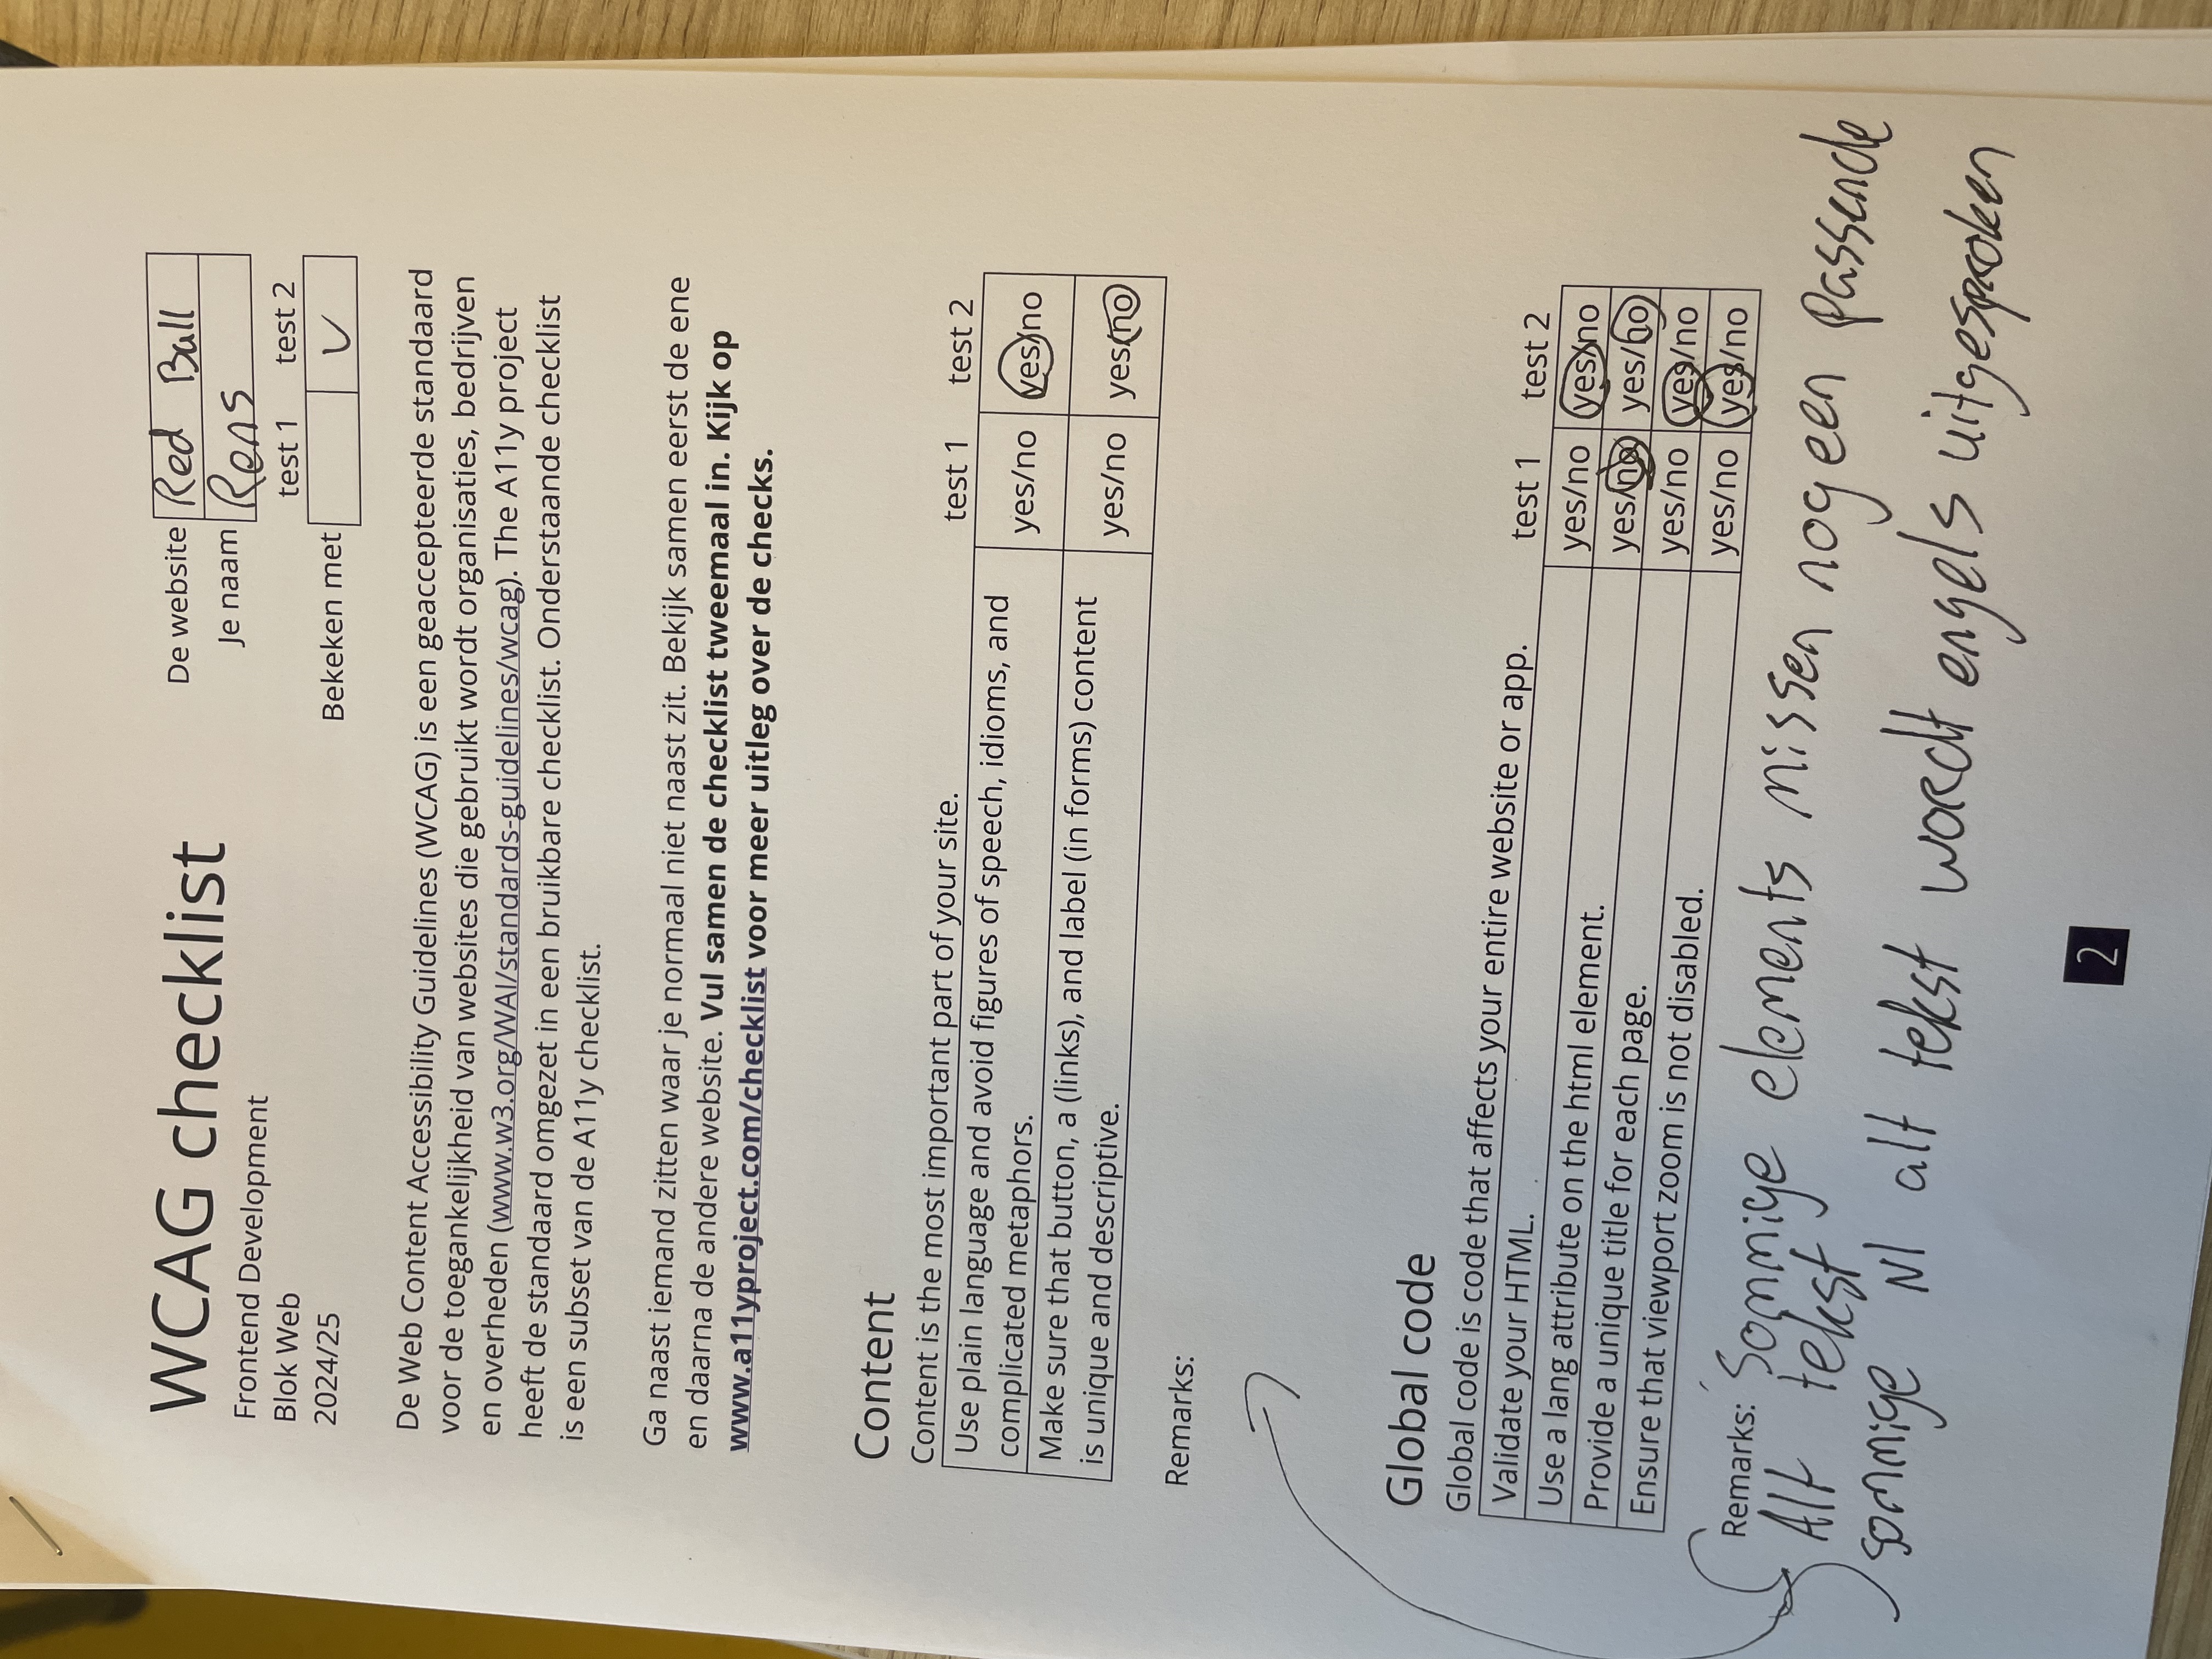 WCAG checklist
Frontend Development
Blok Web
2024/25
De website Red Ball
Je naam Rens
test 1 test 2
Bekeken met V
De Web Content Accessibility Guidelines (WCAG) is een geaccepteerde standaard
voor de toegankelijkheid van websites die gebruikt wordt organisaties, bedrijven
en overheden (www.w3.org/WAI/standards-guidelines/wcag). The A11y project
heeft de standaard omgezet in een bruikbare checklist. Onderstaande checklist
is een subset van de A11y checklist.
Ga naast iemand zitten waar je normaal niet naast zit. Bekijk samen eerst de ene
en daarna de andere website. Vul samen de checklist tweemaal in. Kijk op
www.a11yproject.com/checklist voor meer uitleg over de checks.
Content
Content is the most important part of your site. test 1 test 2
Use plain language and avoid figures of speech, idioms, and
complicated metaphors. yes/no yes/no
Make sure that button, a (links), and label (in forms) content
is unique and descriptive. yes/no yes/no
Remarks:
Global code
Global code is code that affects your entire website or app. test 1 test 2
Validate your HTML. yes/no yes/no
Use a lang attribute on the html element. yes/no yes/no
Provide a unique title for each page. yes/no yes/no
Ensure that viewport zoom is not disabled. yes/no yes/no
Remarks: Sommige elements missen nog een passende
Alt tekst
sommige Nl alt tekst wordt engels uitgesproken
2